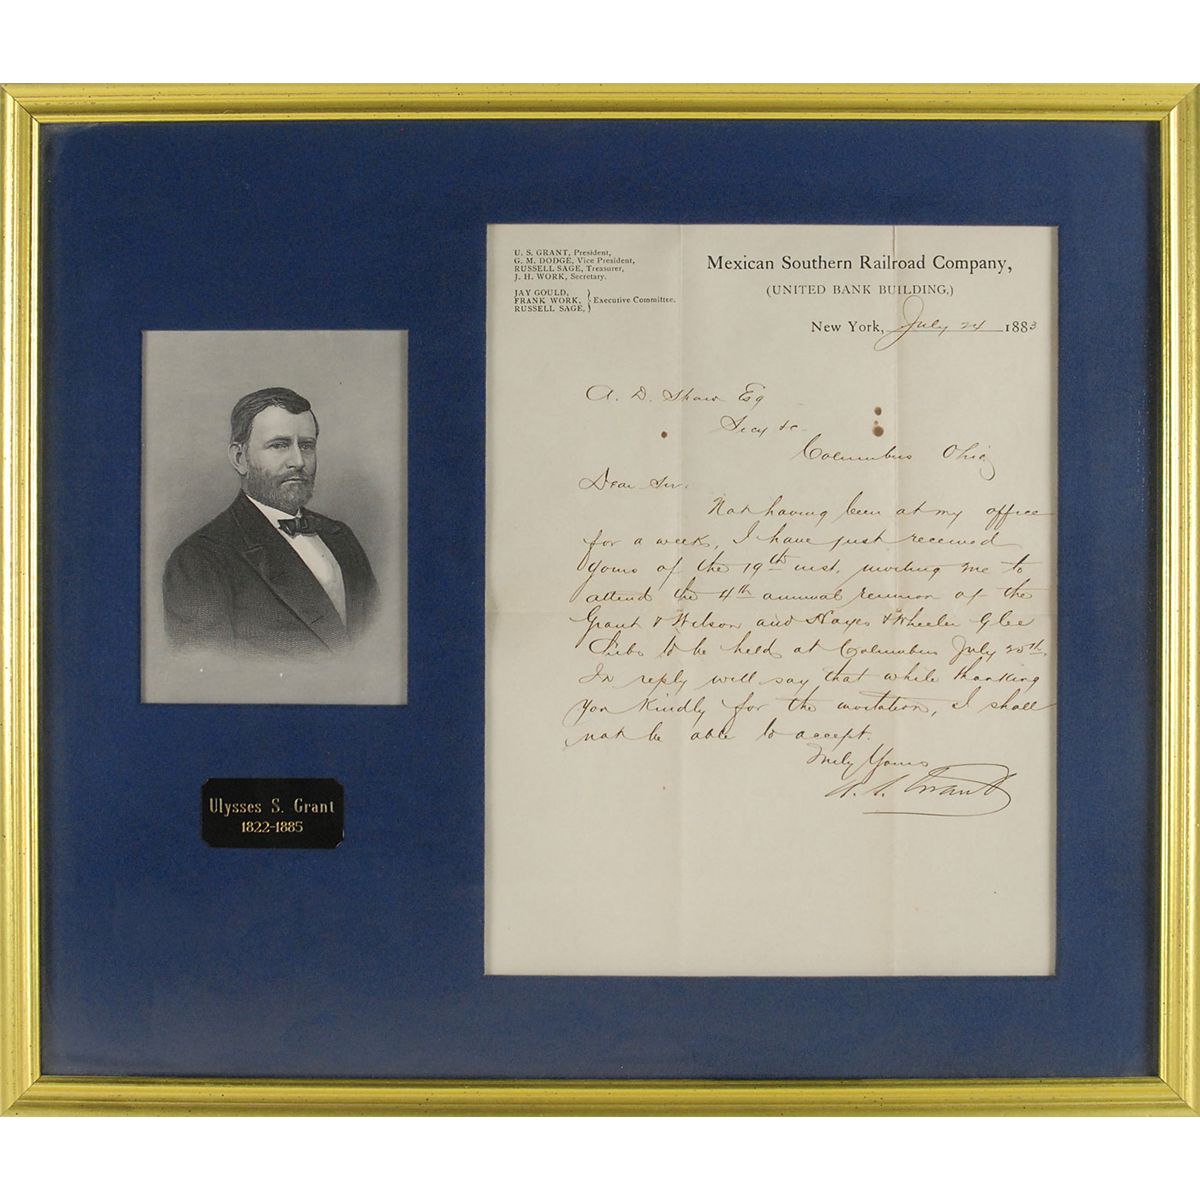 U. S. GRANT, President,
G. M. DODGE, Vice President,
RUSSELL SAGE, Treasurer,
J. H. WORK, Secretary.
JAY GOULD,
FRANK WORK, } Executive Committee.
RUSSELL SAGE,
Mexican Southern Railroad Company,
(UNITED BANK BUILDING,)
New York, July 24 1883
A. D. Shaw Esq
Secy &c.
Columbus Ohio
Dear Sir:
Not having been at my office
for a week, I have just received
yours of the 19th inst. inviting me to
attend the 4th annual reunion of the
Grant & Wilson and Hayes & Wheeler Glee
Clubs to be held at Columbus July 25th
In reply will say that while thanking
you kindly for the invitation, I shall
not be able to accept.
Truly Yours
U. S. Grant
Ulysses S. Grant
1822-1885